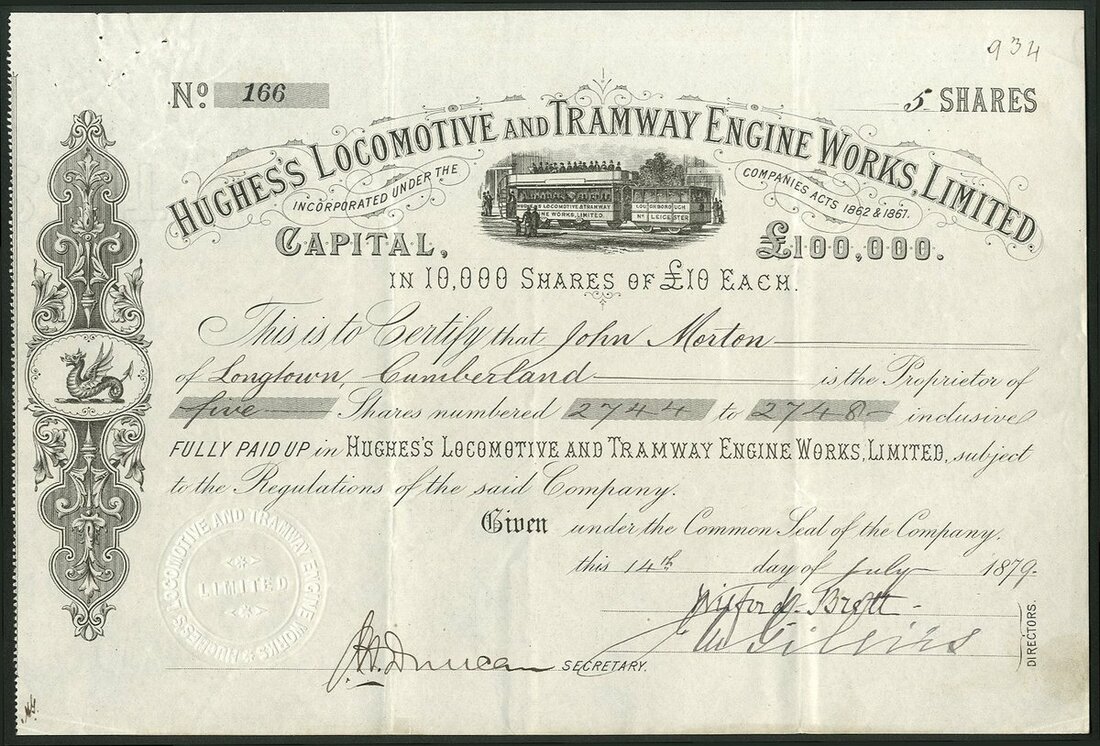 934
No. 166
5 SHARES
HUGHES'S LOCOMOTIVE AND TRAMWAY ENGINE WORKS, LIMITED.
INCORPORATED UNDER THE COMPANIES ACTS 1862 & 1867.
HUGHES'S LOCOMOTIVE & TRAMWAY
NE WORKS, LIMITED.
LOUGHBOROUGH
Nr LEICESTER
CAPITAL, £100,000.
IN 10,000 SHARES OF £10 EACH.
This is to Certify that John Morton
of Longtown, Cumberland is the Proprietor of
five Shares numbered 2744 to 2748 inclusive
FULLY PAID UP in HUGHES'S LOCOMOTIVE AND TRAMWAY ENGINE WORKS, LIMITED, subject
to the Regulations of the said Company.
Given under the Common Seal of the Company.
this 14th day of July 1879.
HUGHES'S LOCOMOTIVE AND TRAMWAY ENGINE WORKS
LIMITED
DIRECTORS.
Duncan SECRETARY.